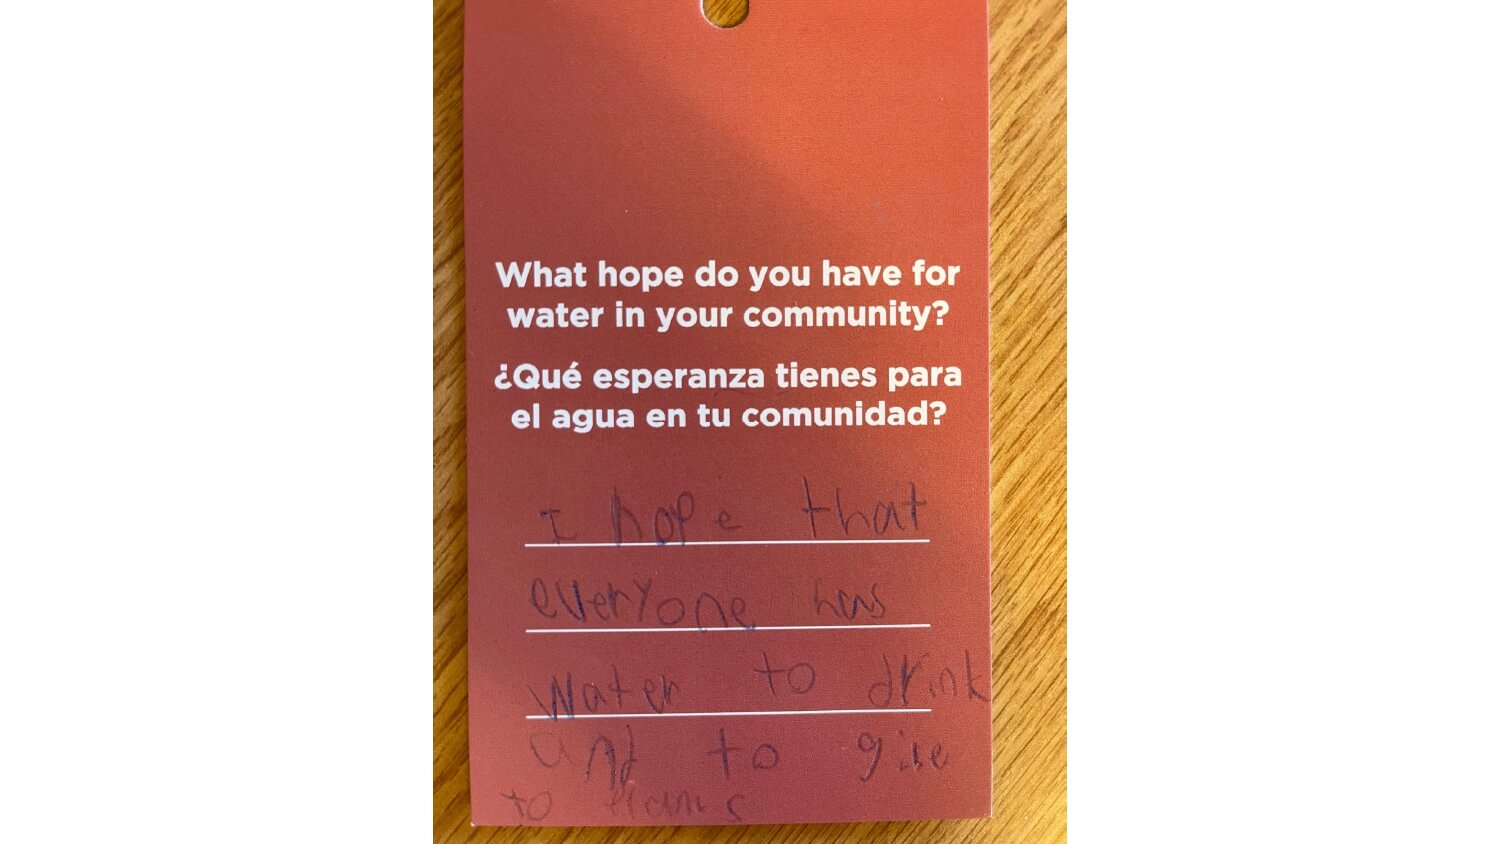 What hope do you have for
water in your community?
¿Qué esperanza tienes para
el agua en tu comunidad?
I hope that
everyone has
water to drink
and to give
to plants